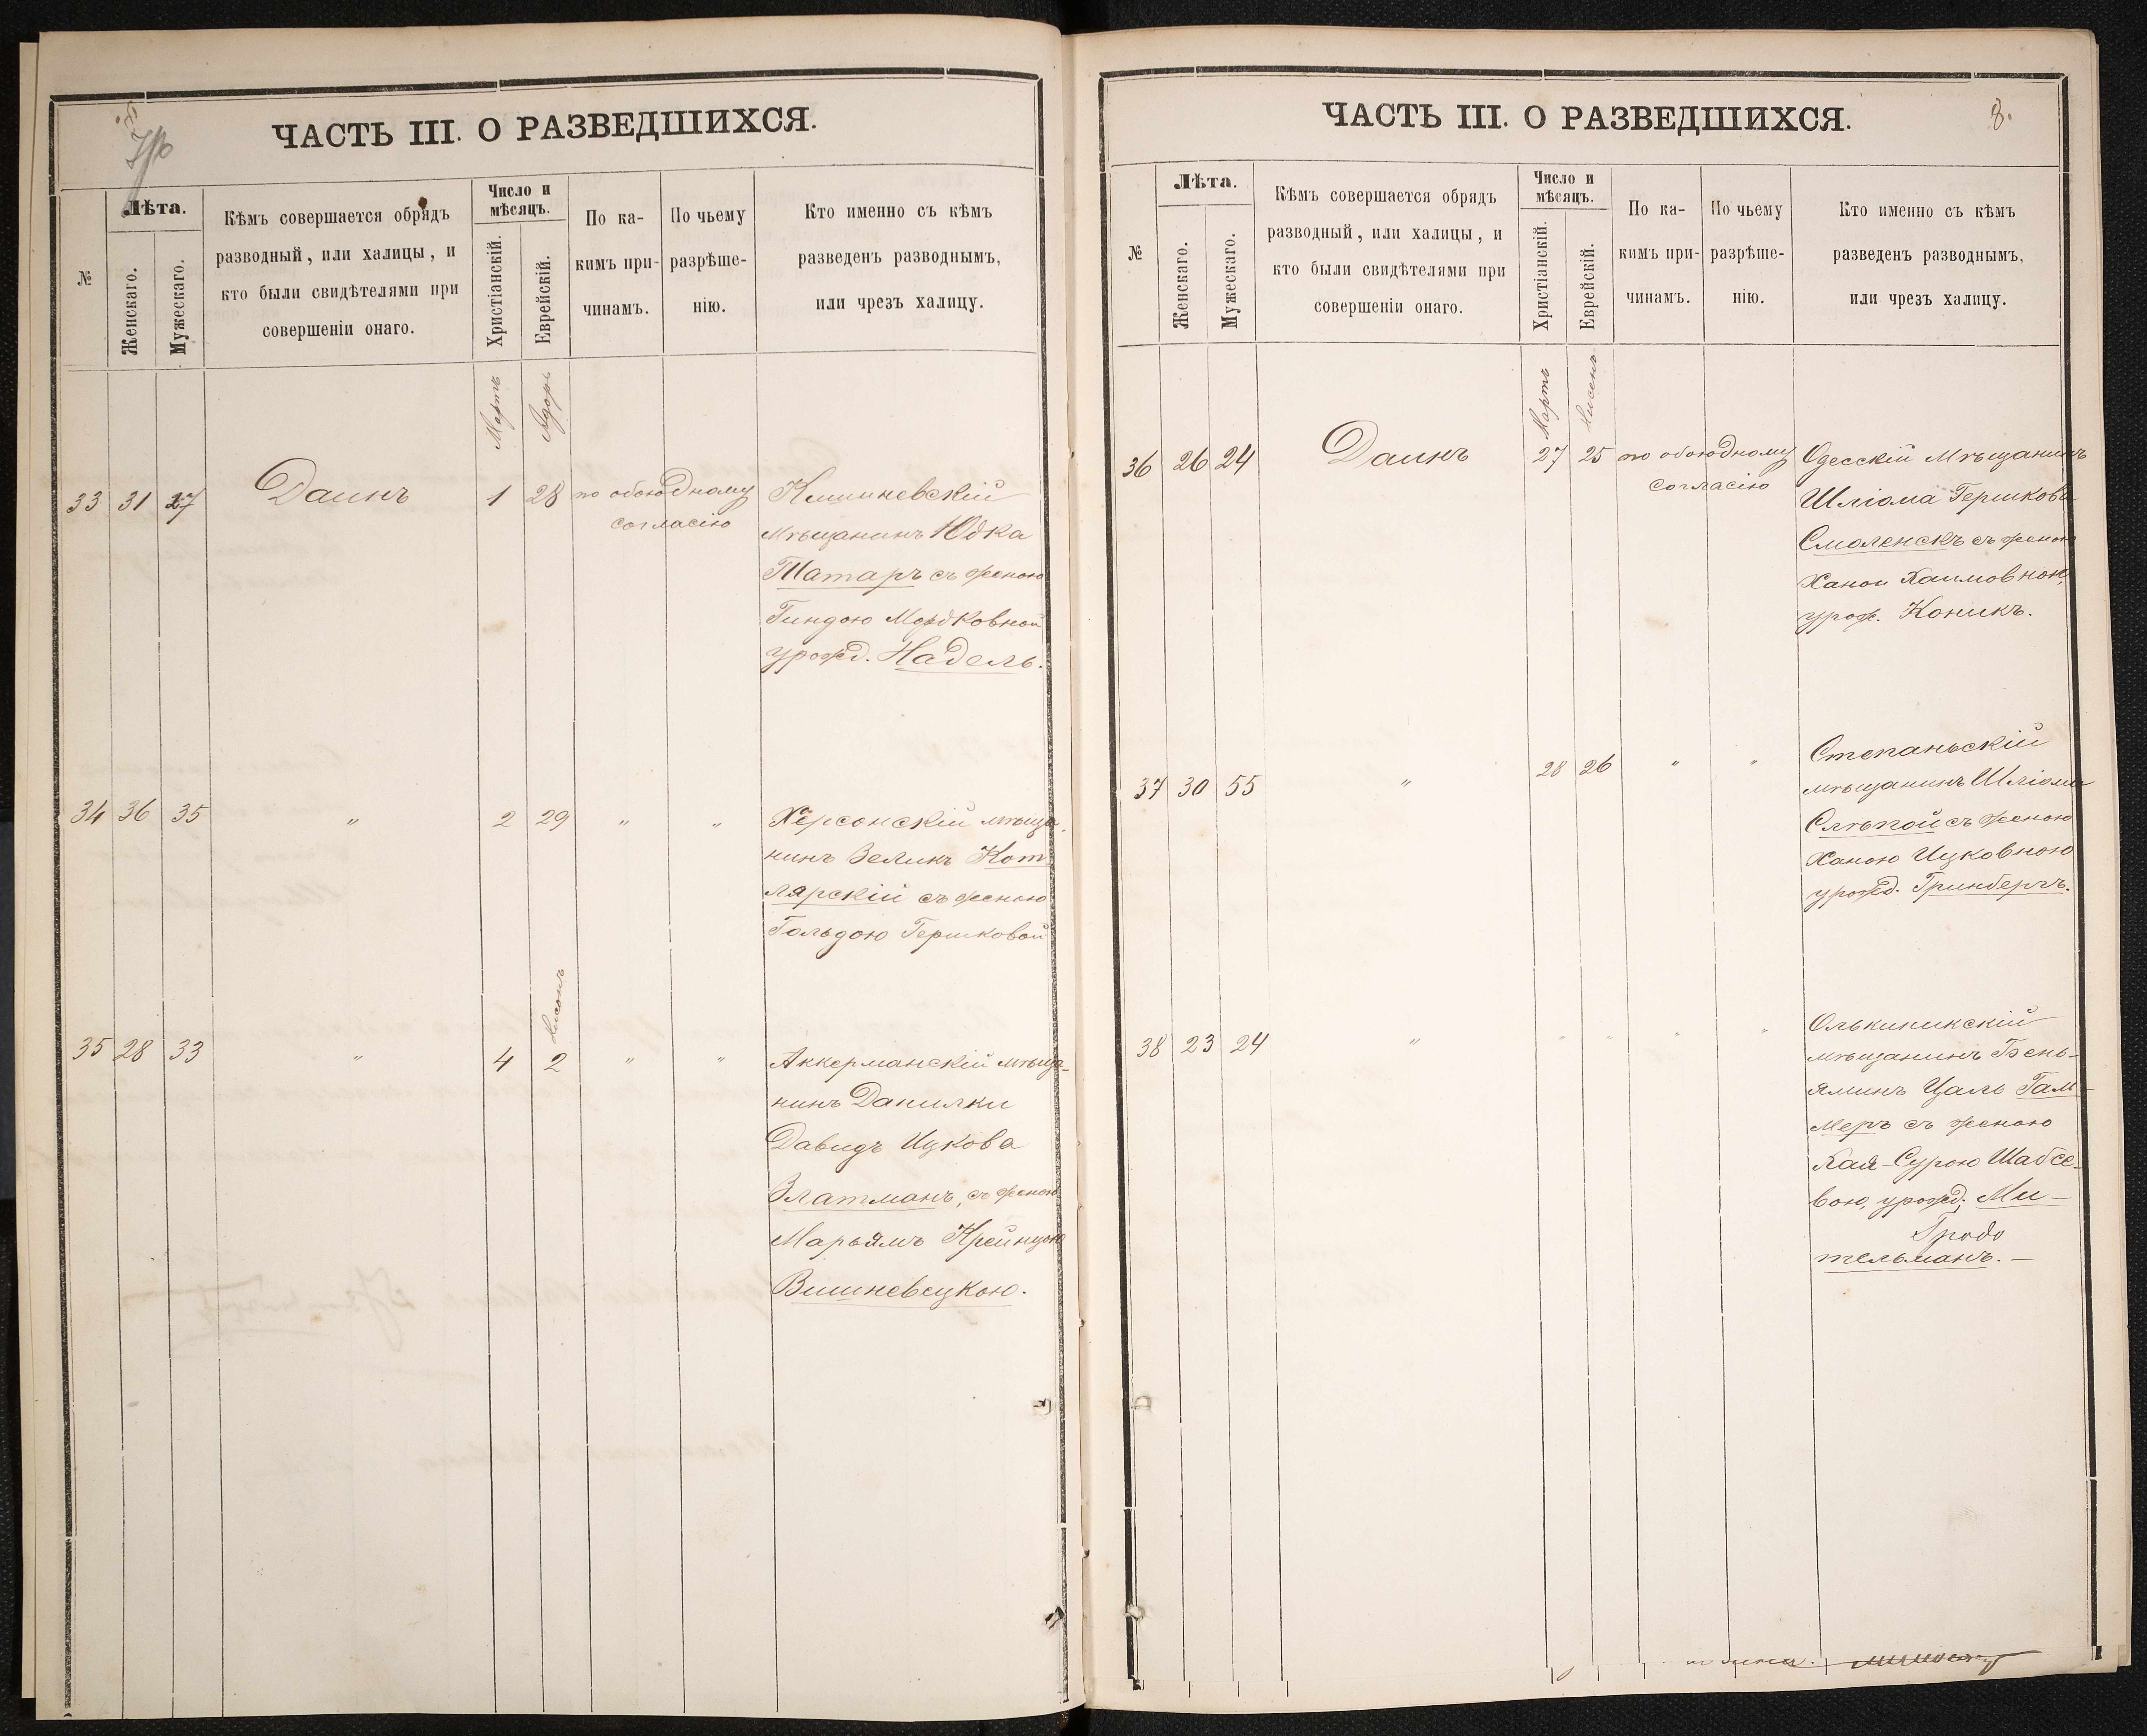 ЧАСТЬ III. О РАЗВЕДШИХСЯ.
№
Лѣта.
Женскаго.
Мужескаго.
Кѣмъ совершается обрядъ
разводный, или халицы, и
кто были свидѣтелями при
совершеніи онаго.
Число и
мѣсяцъ.
Христіанскій.
Еврейскій.
По ка-
кимъ при-
чинамъ.
По чьему
разрѣше-
нію.
Кто именно съ кѣмъ
разведенъ разводнымъ,
или чрезъ халицу.
Мартъ
Адоръ
33 31 27 Даинъ 1 28 по обоюдному
согласію
Кишиневскій
Мѣщанинъ Юдка
Татаръ съ женою
Гиндою Мордковной
урожд. Надель.
34 36 35 " 2 29 " "
Херсонскій мѣща-
нинъ Зелинъ Кот-
лярскій съ женою
Гольдою Гершковой
Нисонъ
35 28 33 " 4 2 " "
Аккерманскій мѣща-
нинъ Данилки
Давидъ Ицкова
Златманъ, съ женою
Марьямъ Крейнцою
Вишневецкою.
ЧАСТЬ III. О РАЗВЕДШИХСЯ.
8.
№
Лѣта.
Женскаго.
Мужескаго.
Кѣмъ совершается обрядъ
разводный, или халицы, и
кто были свидѣтелями при
совершеніи онаго.
Число и
мѣсяцъ.
Христіанскій.
Еврейскій.
По ка-
кимъ при-
чинамъ.
По чьему
разрѣше-
нію.
Кто именно съ кѣмъ
разведенъ разводнымъ,
или чрезъ халицу.
Мартъ
Нисенъ
36 26 24 Даинъ 27 25 по обоюдному
согласію
Одесскій Мѣщанинъ
Шліома Гершкова
Смоленскъ съ женою
Ханои Хаимовною,
урож. Коникъ.
37 30 55 " 28 26 " "
Степаньскій
мѣщанинъ Шліома
Слѣпой съ женою
Ханою Ицковною
урожд. Гринбергъ.
38 23 24 " " " " "
Олькиникскій
мѣщанинъ Бень-
яминъ Цаль Гам-
меръ съ женою
Хая-Сурою Шабсе-
вою, урожд. Ми-
тельманъ.-